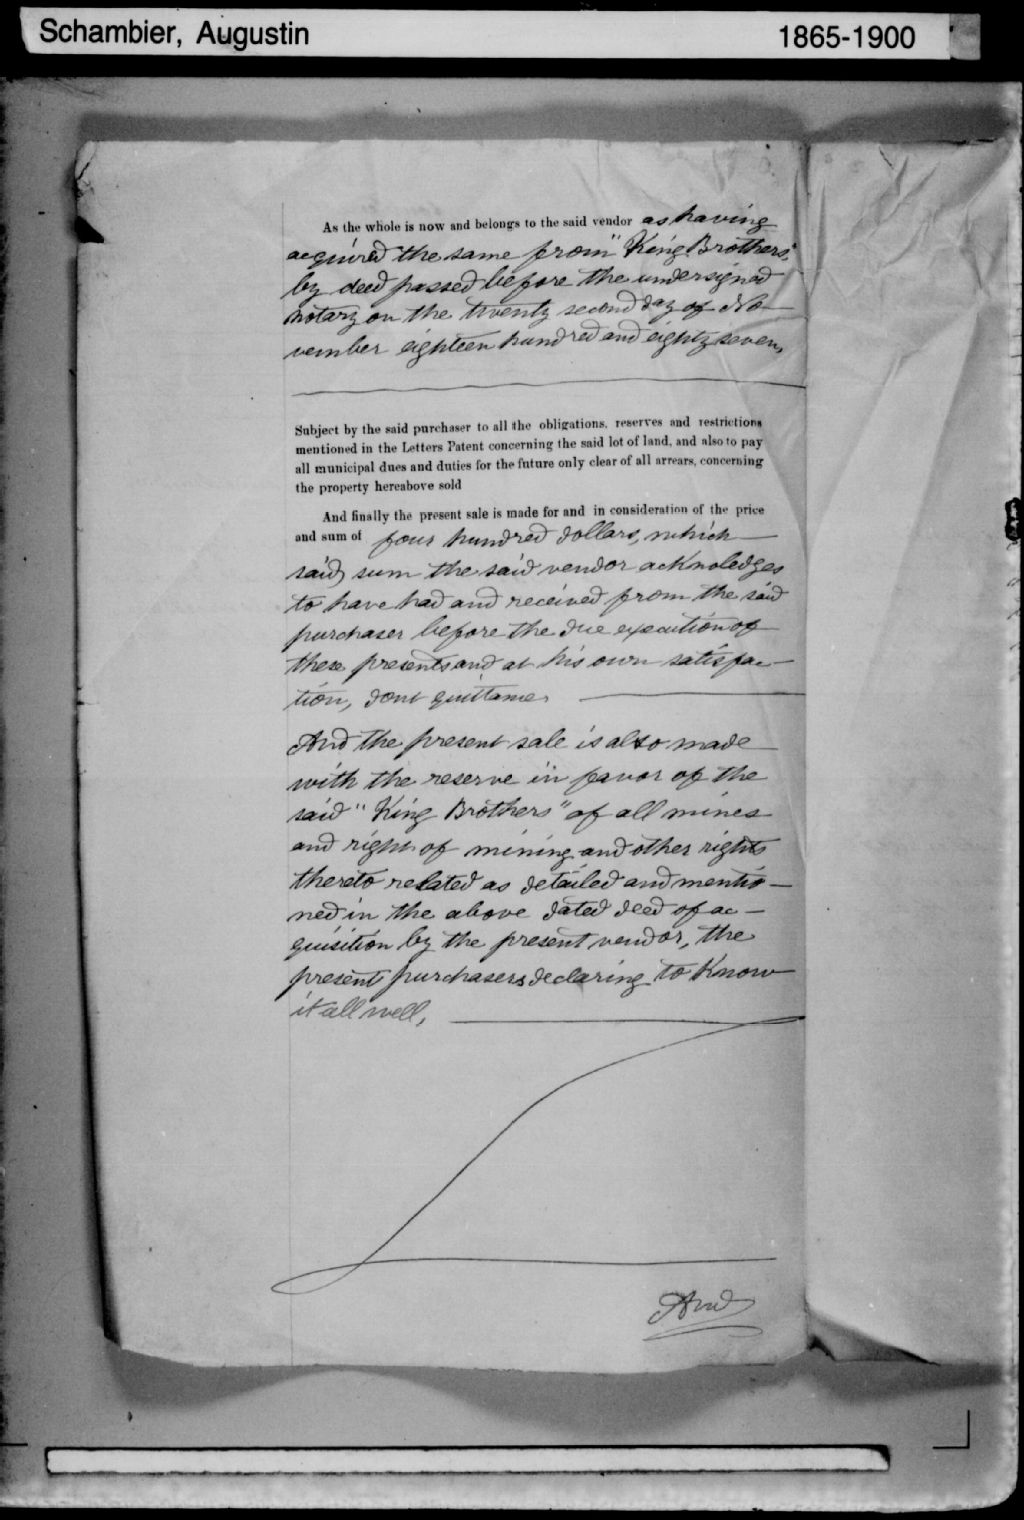 Schambier, Augustin 1865-1900
As the whole is now and belongs to the said vendor as having
acquired the same from "King Brothers"
by deed passed before the undersigned
notary on the twenty second day of No-
vember eighteen hundred and eighty seven,
Subject by the said purchaser to all the obligations, reserves and restrictions
mentioned in the Letters Patent concerning the said lot of land, and also to pay
all municipal dues and duties for the future only clear of all arrears, concerning
the property hereabove sold
And finally the present sale is made for and in consideration of the price
and sum of four hundred dollars, which
said sum the said vendor acknoledges
to have had and received from the said
purchaser before the due execution of
these presents and at his own satisfac-
tion, dont quittance
And the present sale is also made
with the reserve in favor of the
said "King Brothers" of all mines
and right of mining and other rights
thereto related as detailed and mentio-
ned in the above dated deed of ac-
quisition by the present vendor, the
present purchasers declaring to Know
it all well,
And